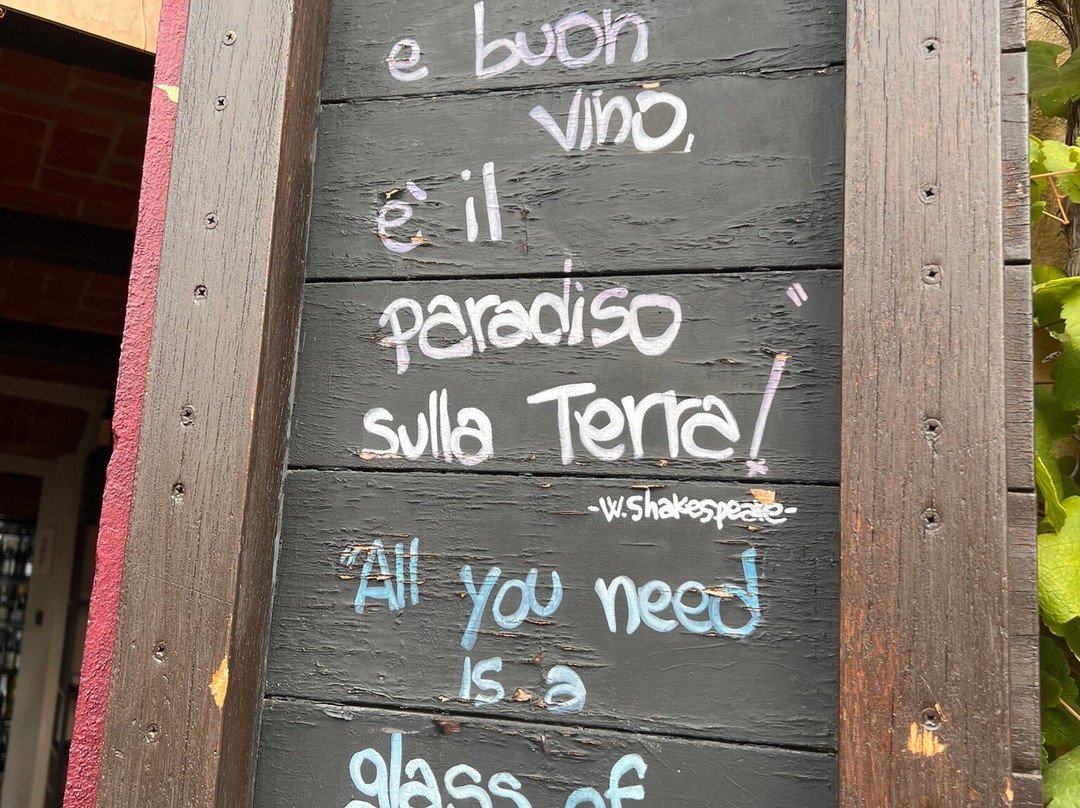 e buon
vino,
è il
paradiso "
sulla Terra!
-W.Shakespeare-
"All you need
is a
glass of